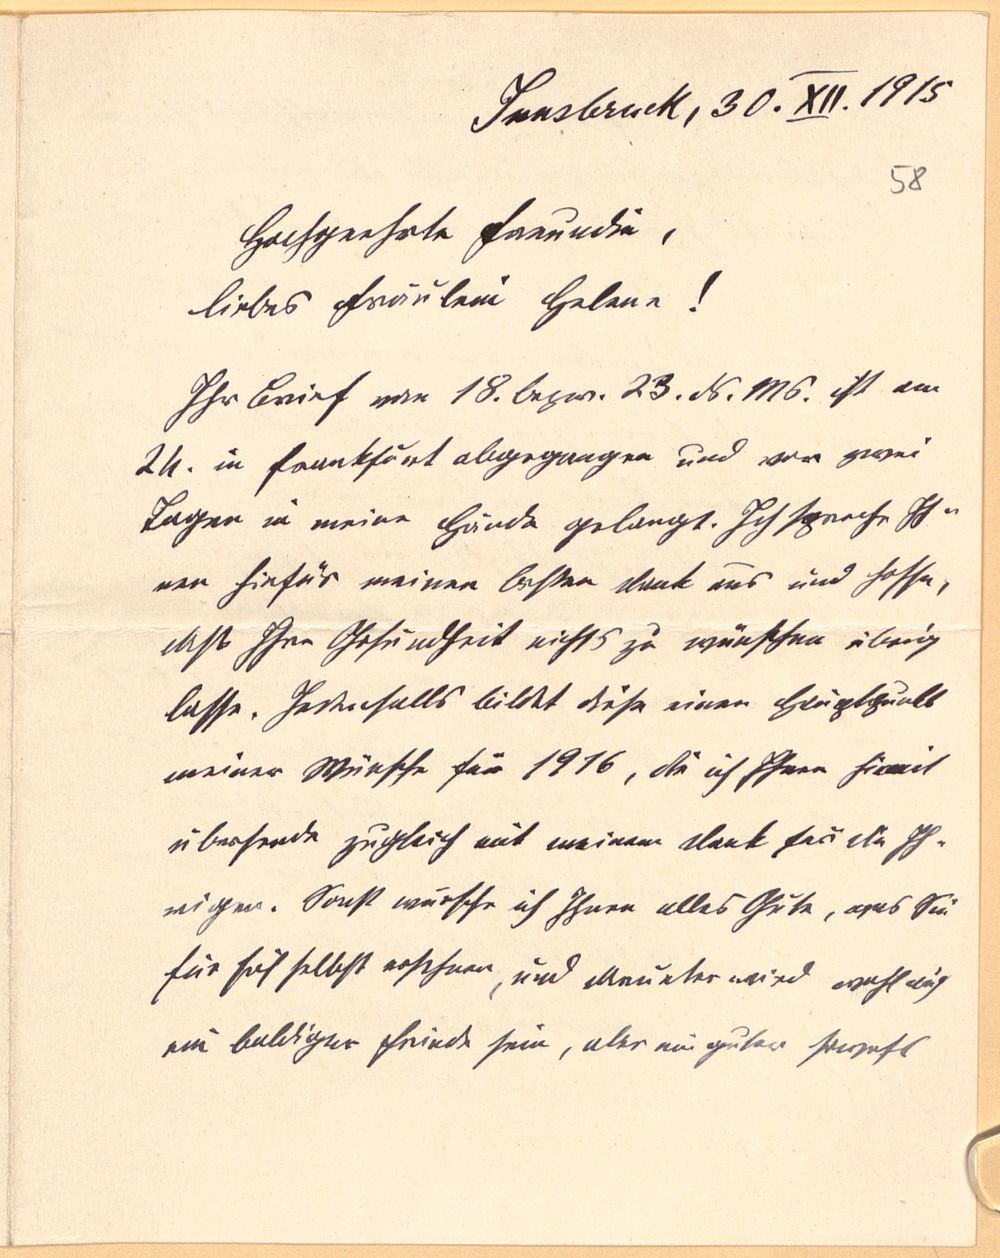 Innsbruck, 30. XII. 1915
58
Hochgeehrte Freundin,
liebes Fräulein Helene!
Ihr Brief von 18. bezw. 23. ds. Ms. ist am
24. in Frankfurt abgegangen und vor zwei
Tagen in meine Hände gelangt. Ich spreche Ih-
nen hiefür meinen besten Dank aus und hoffe,
daß Ihre Gesundheit nichts zu wünschen übrig
lasse. Jedenfalls bildet diese einen Hauptpunkt
meiner Wünsche für 1916, die ich Ihnen hiemit
übersende zugleich mit meinem Dank für die Ih-
rigen. Sonst wünsche ich Ihnen alles Gute, was Sie
für sich selbst ersehnen, und darunter wird wohl auch
ein baldiger Friede sein, aber ein guter sowohl